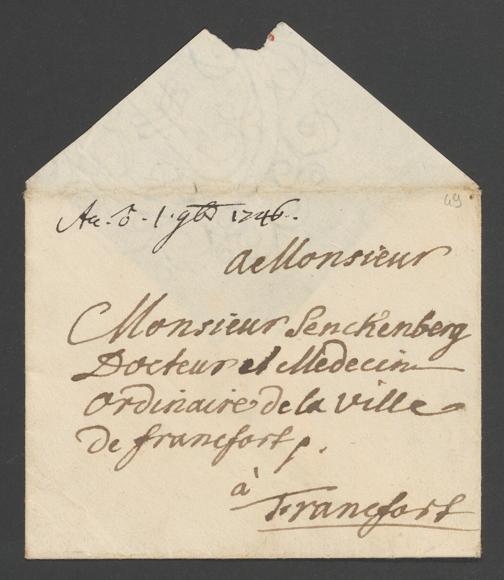 49
Ac. d. 1. 9bʳ 1746.
A Monsieur
Monsieur Senckenberg
Docteur et Medecin
ordinaire de la Ville
de francfort p.
à
Francfort